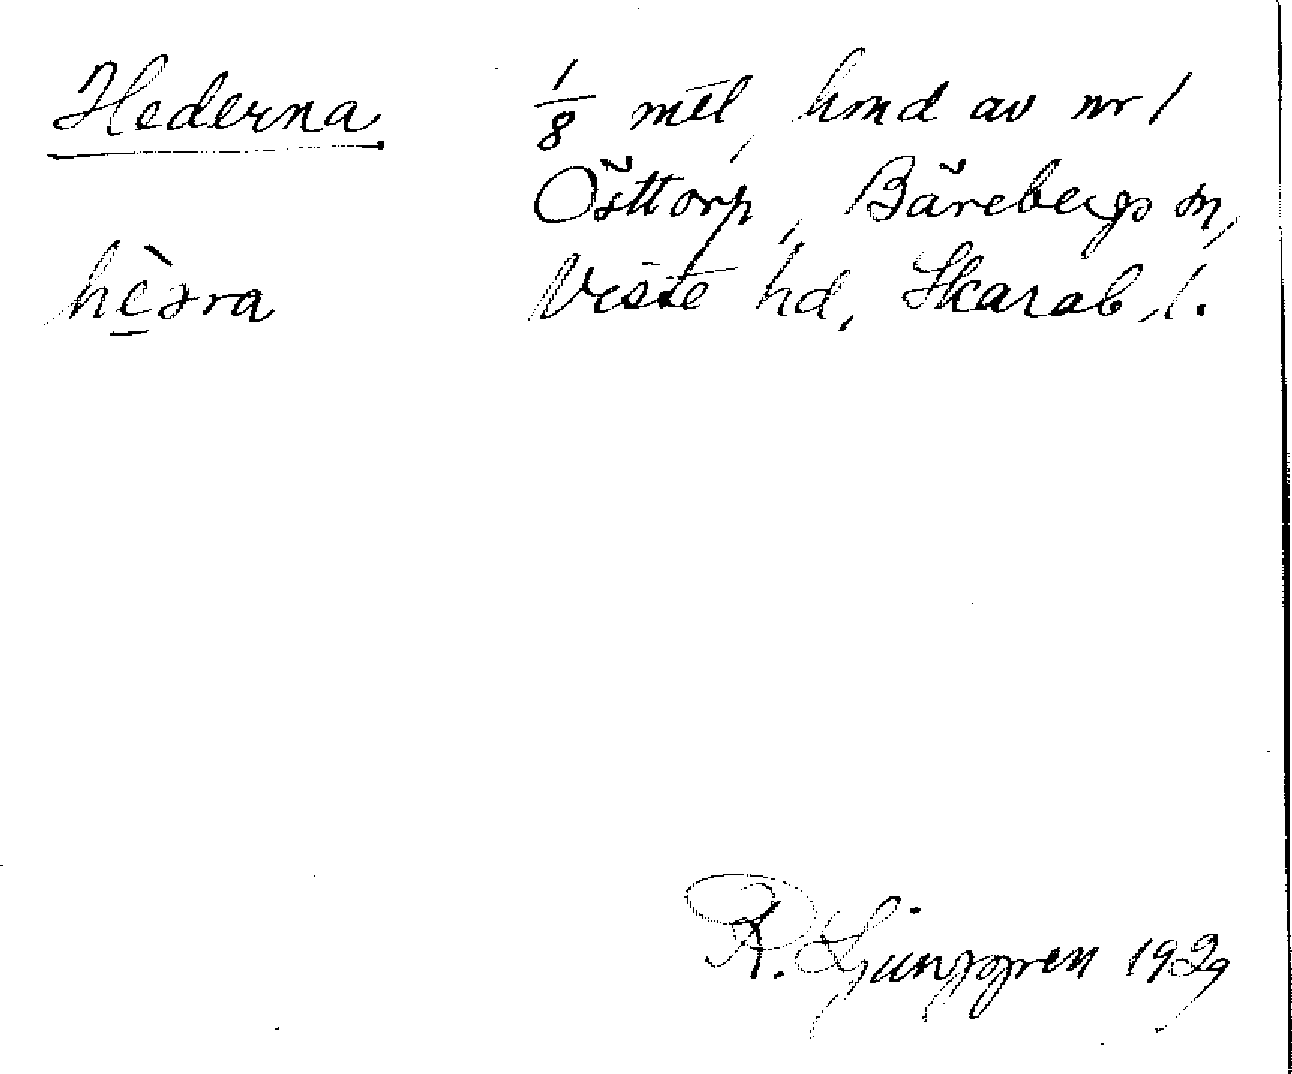 Hederna
hèɔra
1/8 mtl, hmd av nr 1
Östtorp, Bärebergs sn,
Viste hd, Skarab. l.
R. Ljunggren 1929